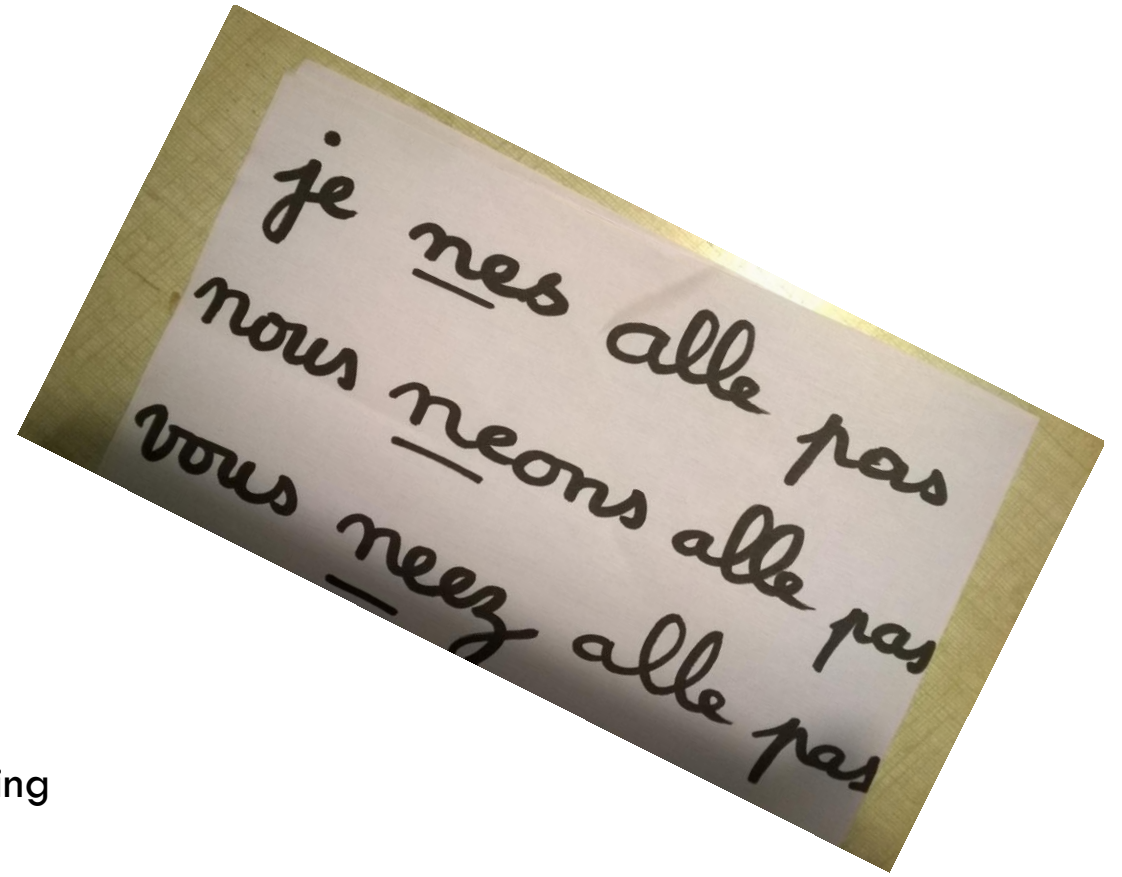 je nes alle pas
nous neons alle pas
vous neez alle pas
ing